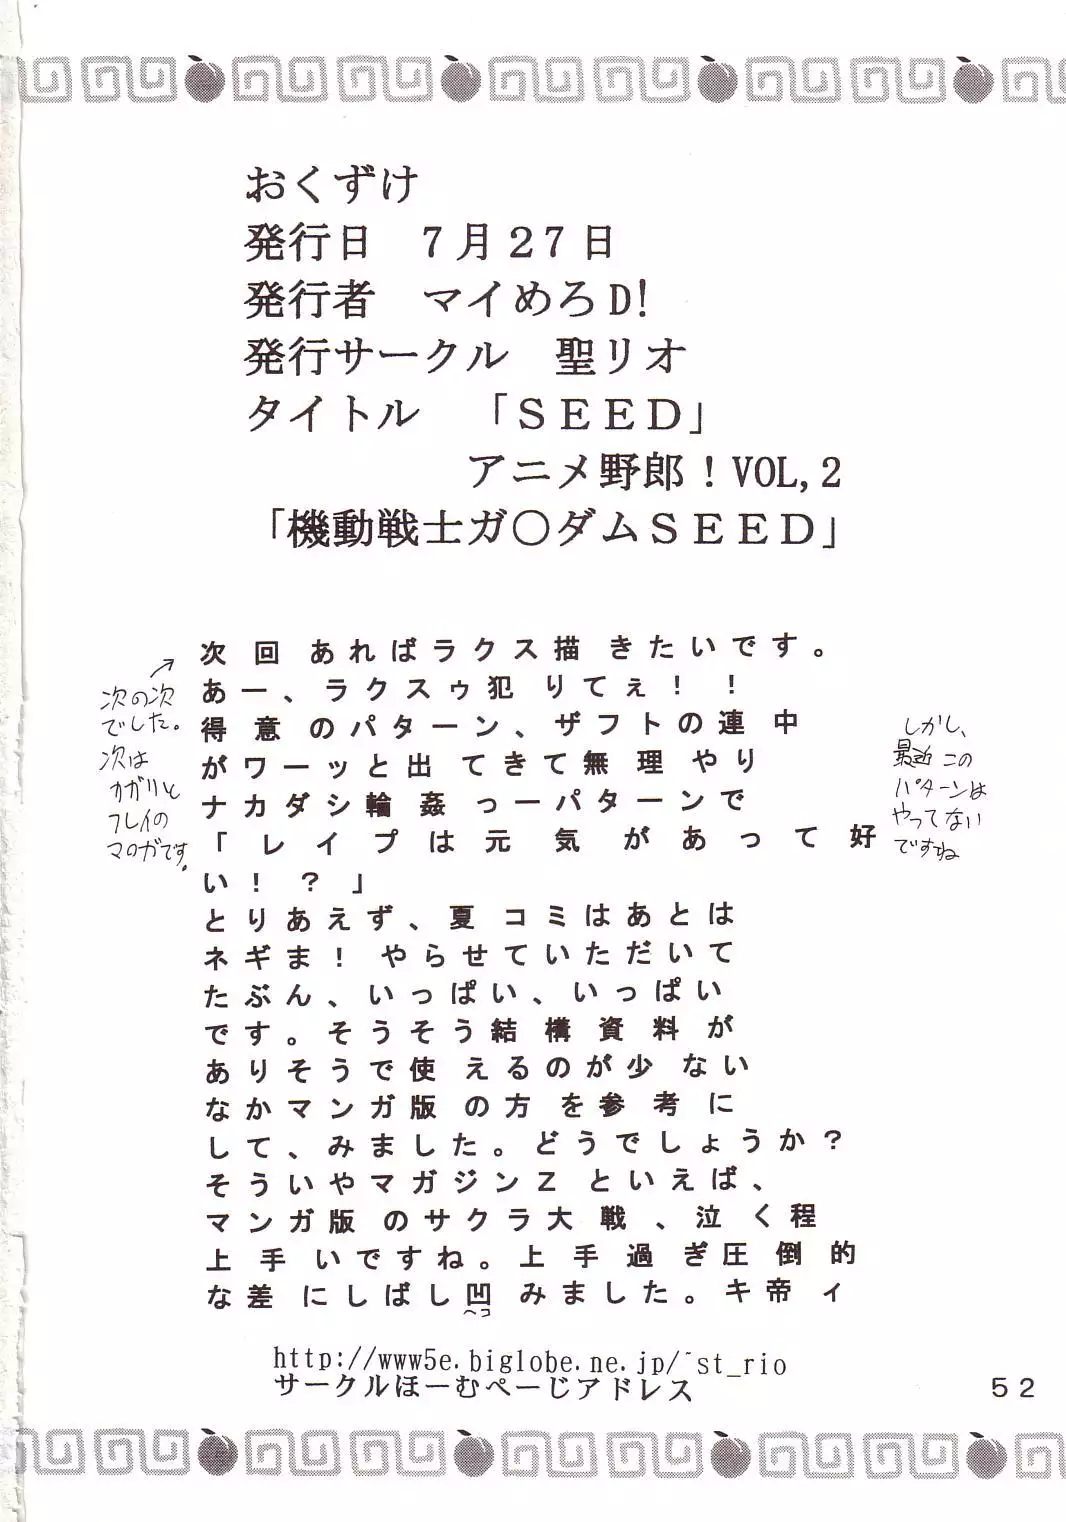 おくずけ
発行日　７月２７日
発行者　マイめろD!
発行サークル　聖リオ
タイトル　「ＳＥＥＤ」
アニメ野郎！VOL,2
「機動戦士ガ〇ダムＳＥＥＤ」
次回あればラクス描きたいです。
あー、ラクスゥ犯りてぇ！！
得意のパターン、ザフトの連中
がワーッと出てきて無理やり
ナカダシ輪姦っーパターンで
「レイプは元気があって好
い！？」
とりあえず、夏コミはあとは
ネギま！やらせていただいて
たぶん、いっぱい、いっぱい
です。そうそう結構資料が
ありそうで使えるのが少ない
なかマンガ版の方を参考に
して、みました。どうでしょうか？
そういやマガジンＺといえば、
マンガ版のサクラ大戦、泣く程
上手いですね。上手過ぎ圧倒的
な差にしばし凹みました。キ帝ィ
ヘコ
→
次の次
でした。
次は
カガリと
フレイの
マロガです。
しかし、
最近この
パターンは
やってない
ですね
http://www5e.biglobe.ne.jp/~st_rio
サークルほーむぺーじアドレス
５２